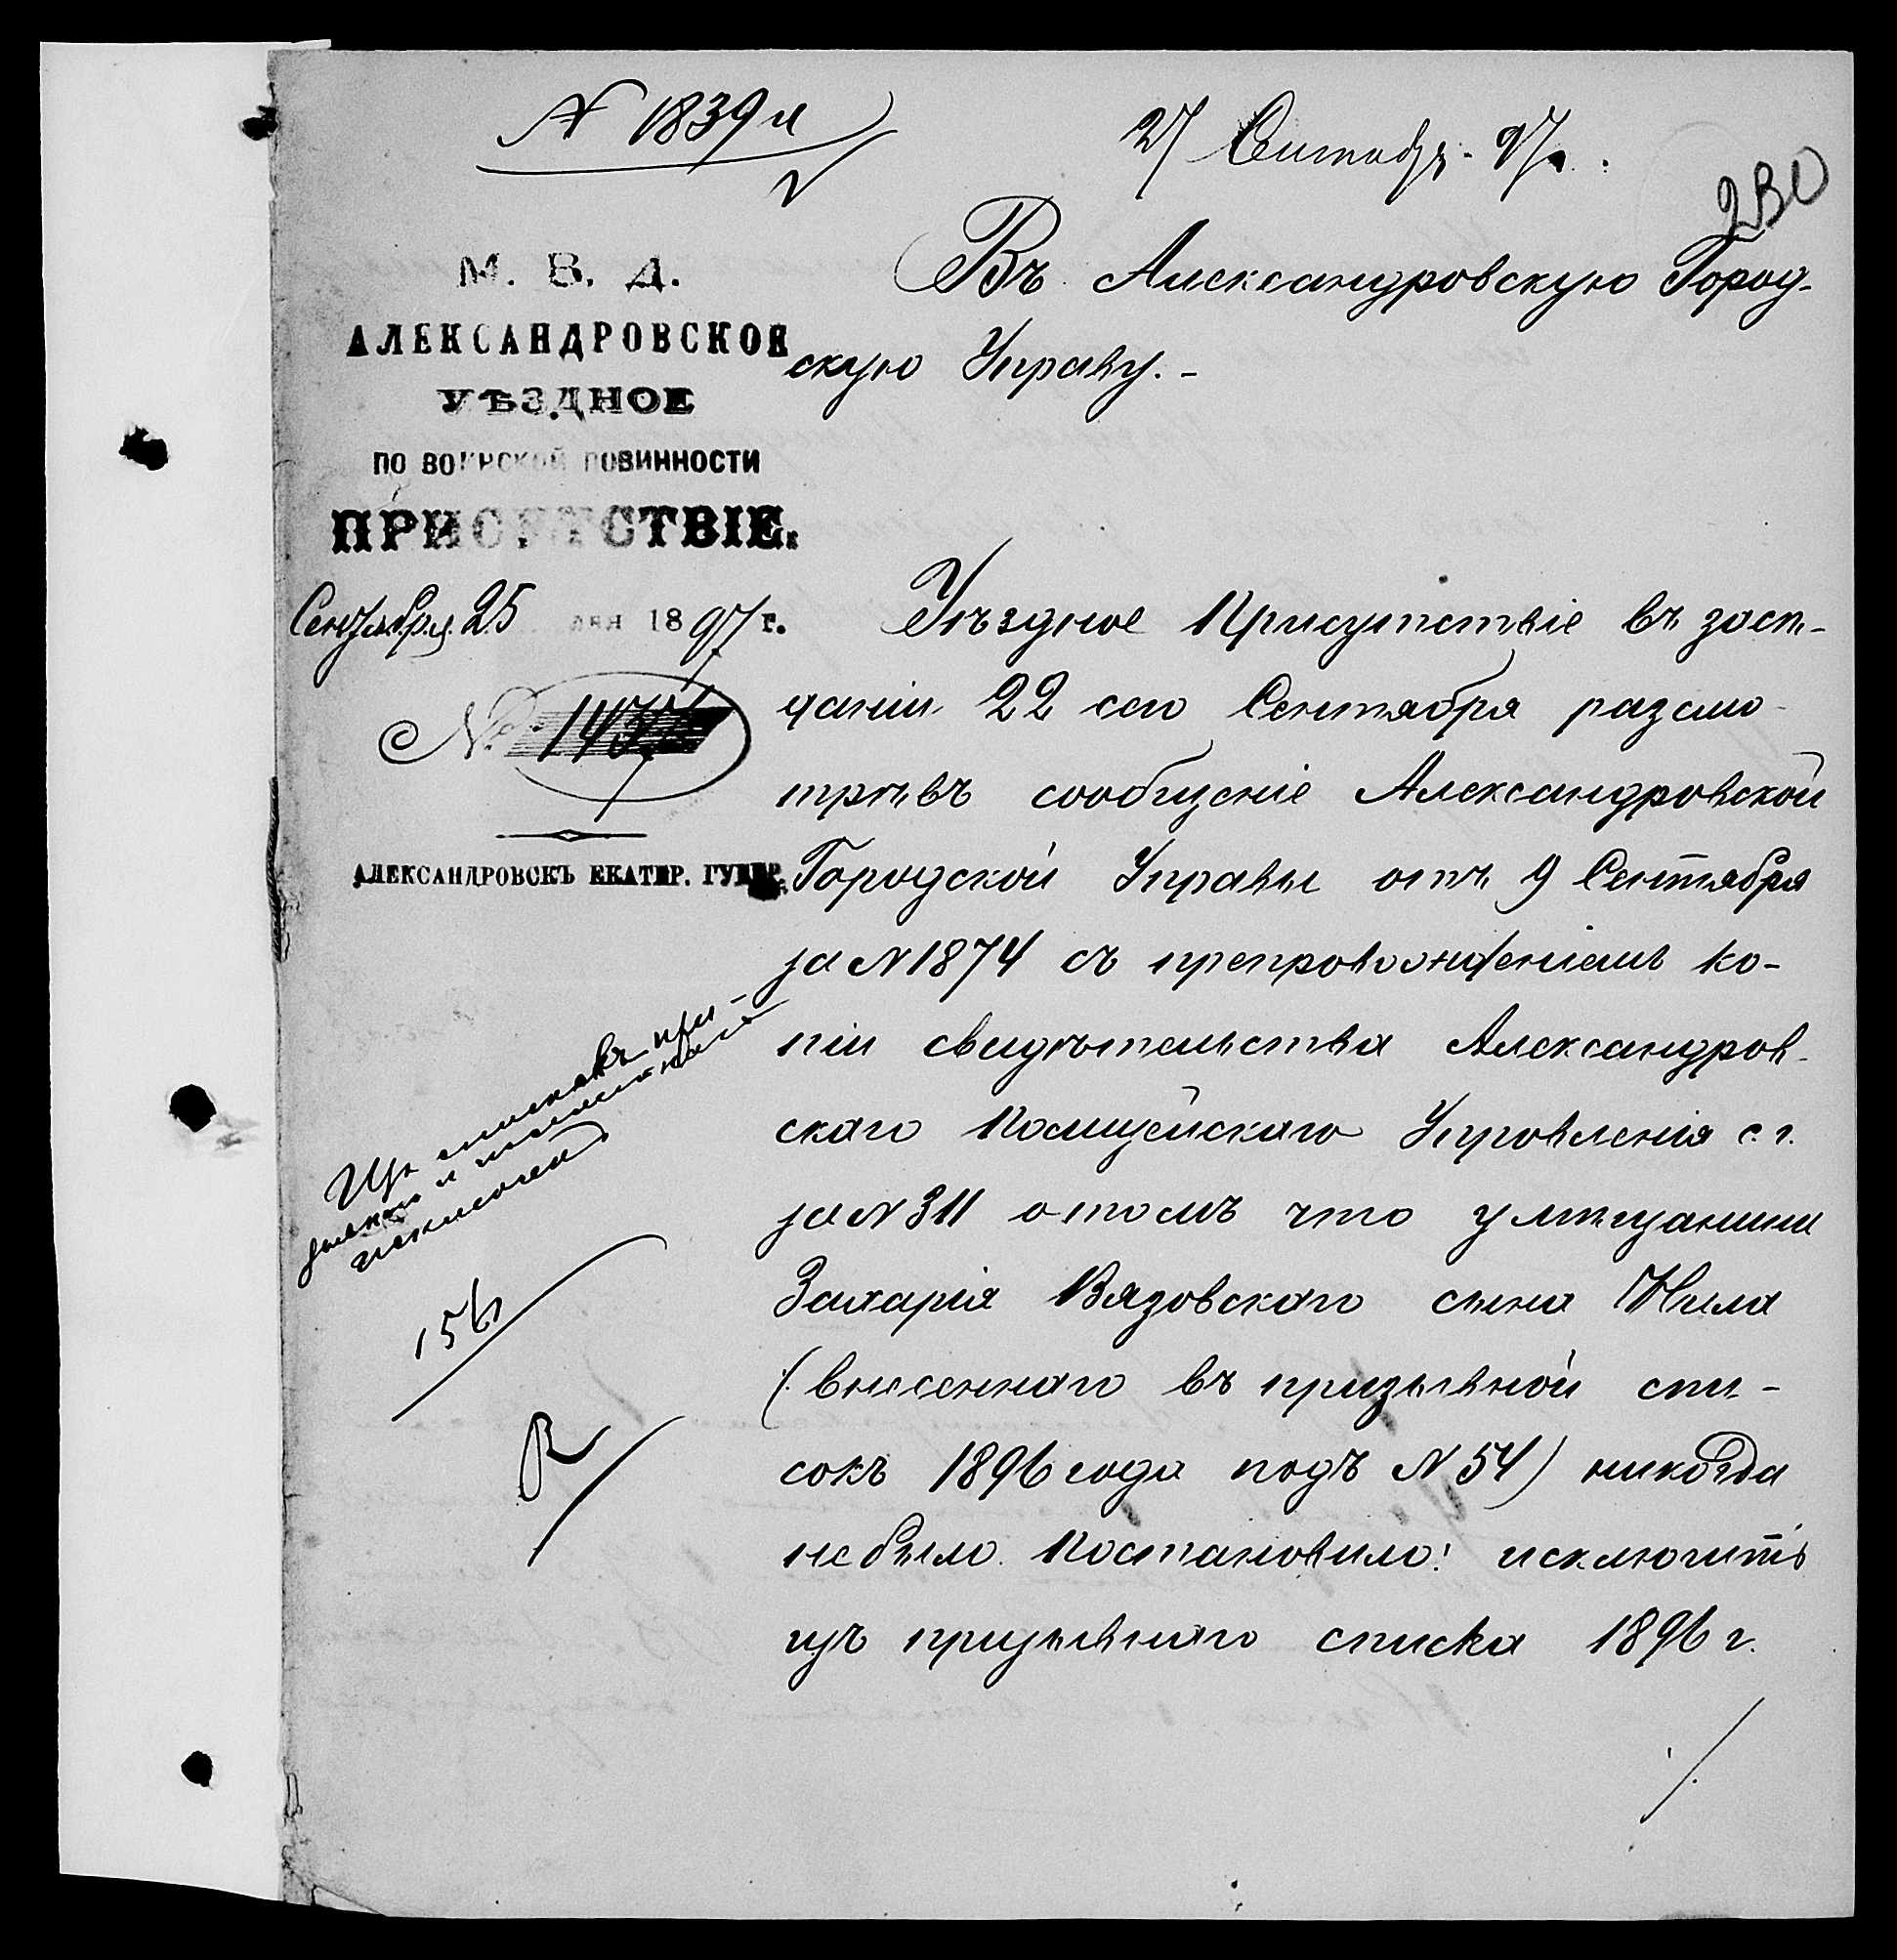 № 1839
27 Сентябр. 97 г.
230
М. В. Д.
АЛЕКСАНДРОВСКОЕ
УѢЗДНОЕ
ПО ВОИНСКОЙ ПОВИННОСТИ
ПРИСУТСТВІЕ.
Сентября 25 дня 1897 г.
№
АЛЕКСАНДРОВСКЪ ЕКАТЕР. ГУБЕР.
Въ Александровскую Город-
скую Управу. -
Уѣздное Присутствіе въ засѣ-
даніи 22 сего Сентября разсмо-
трѣвъ сообщеніе Александровской
Городской Управы отъ 9 Сентября
за № 1874 съ препровожденіемъ ко-
піи свидѣтельства Александров-
скаго Полицейскаго Управленія с. г.
за № 311 о томъ что у мѣщанина
Захарія Вязовскаго сына Нила
(внесеннаго въ призывной спи-
сокъ 1896 года подъ № 54) никогда
не было. Постановило: исключить
изъ призывнаго списка 1896 г.
Изъ списковъ при-
исключенъ